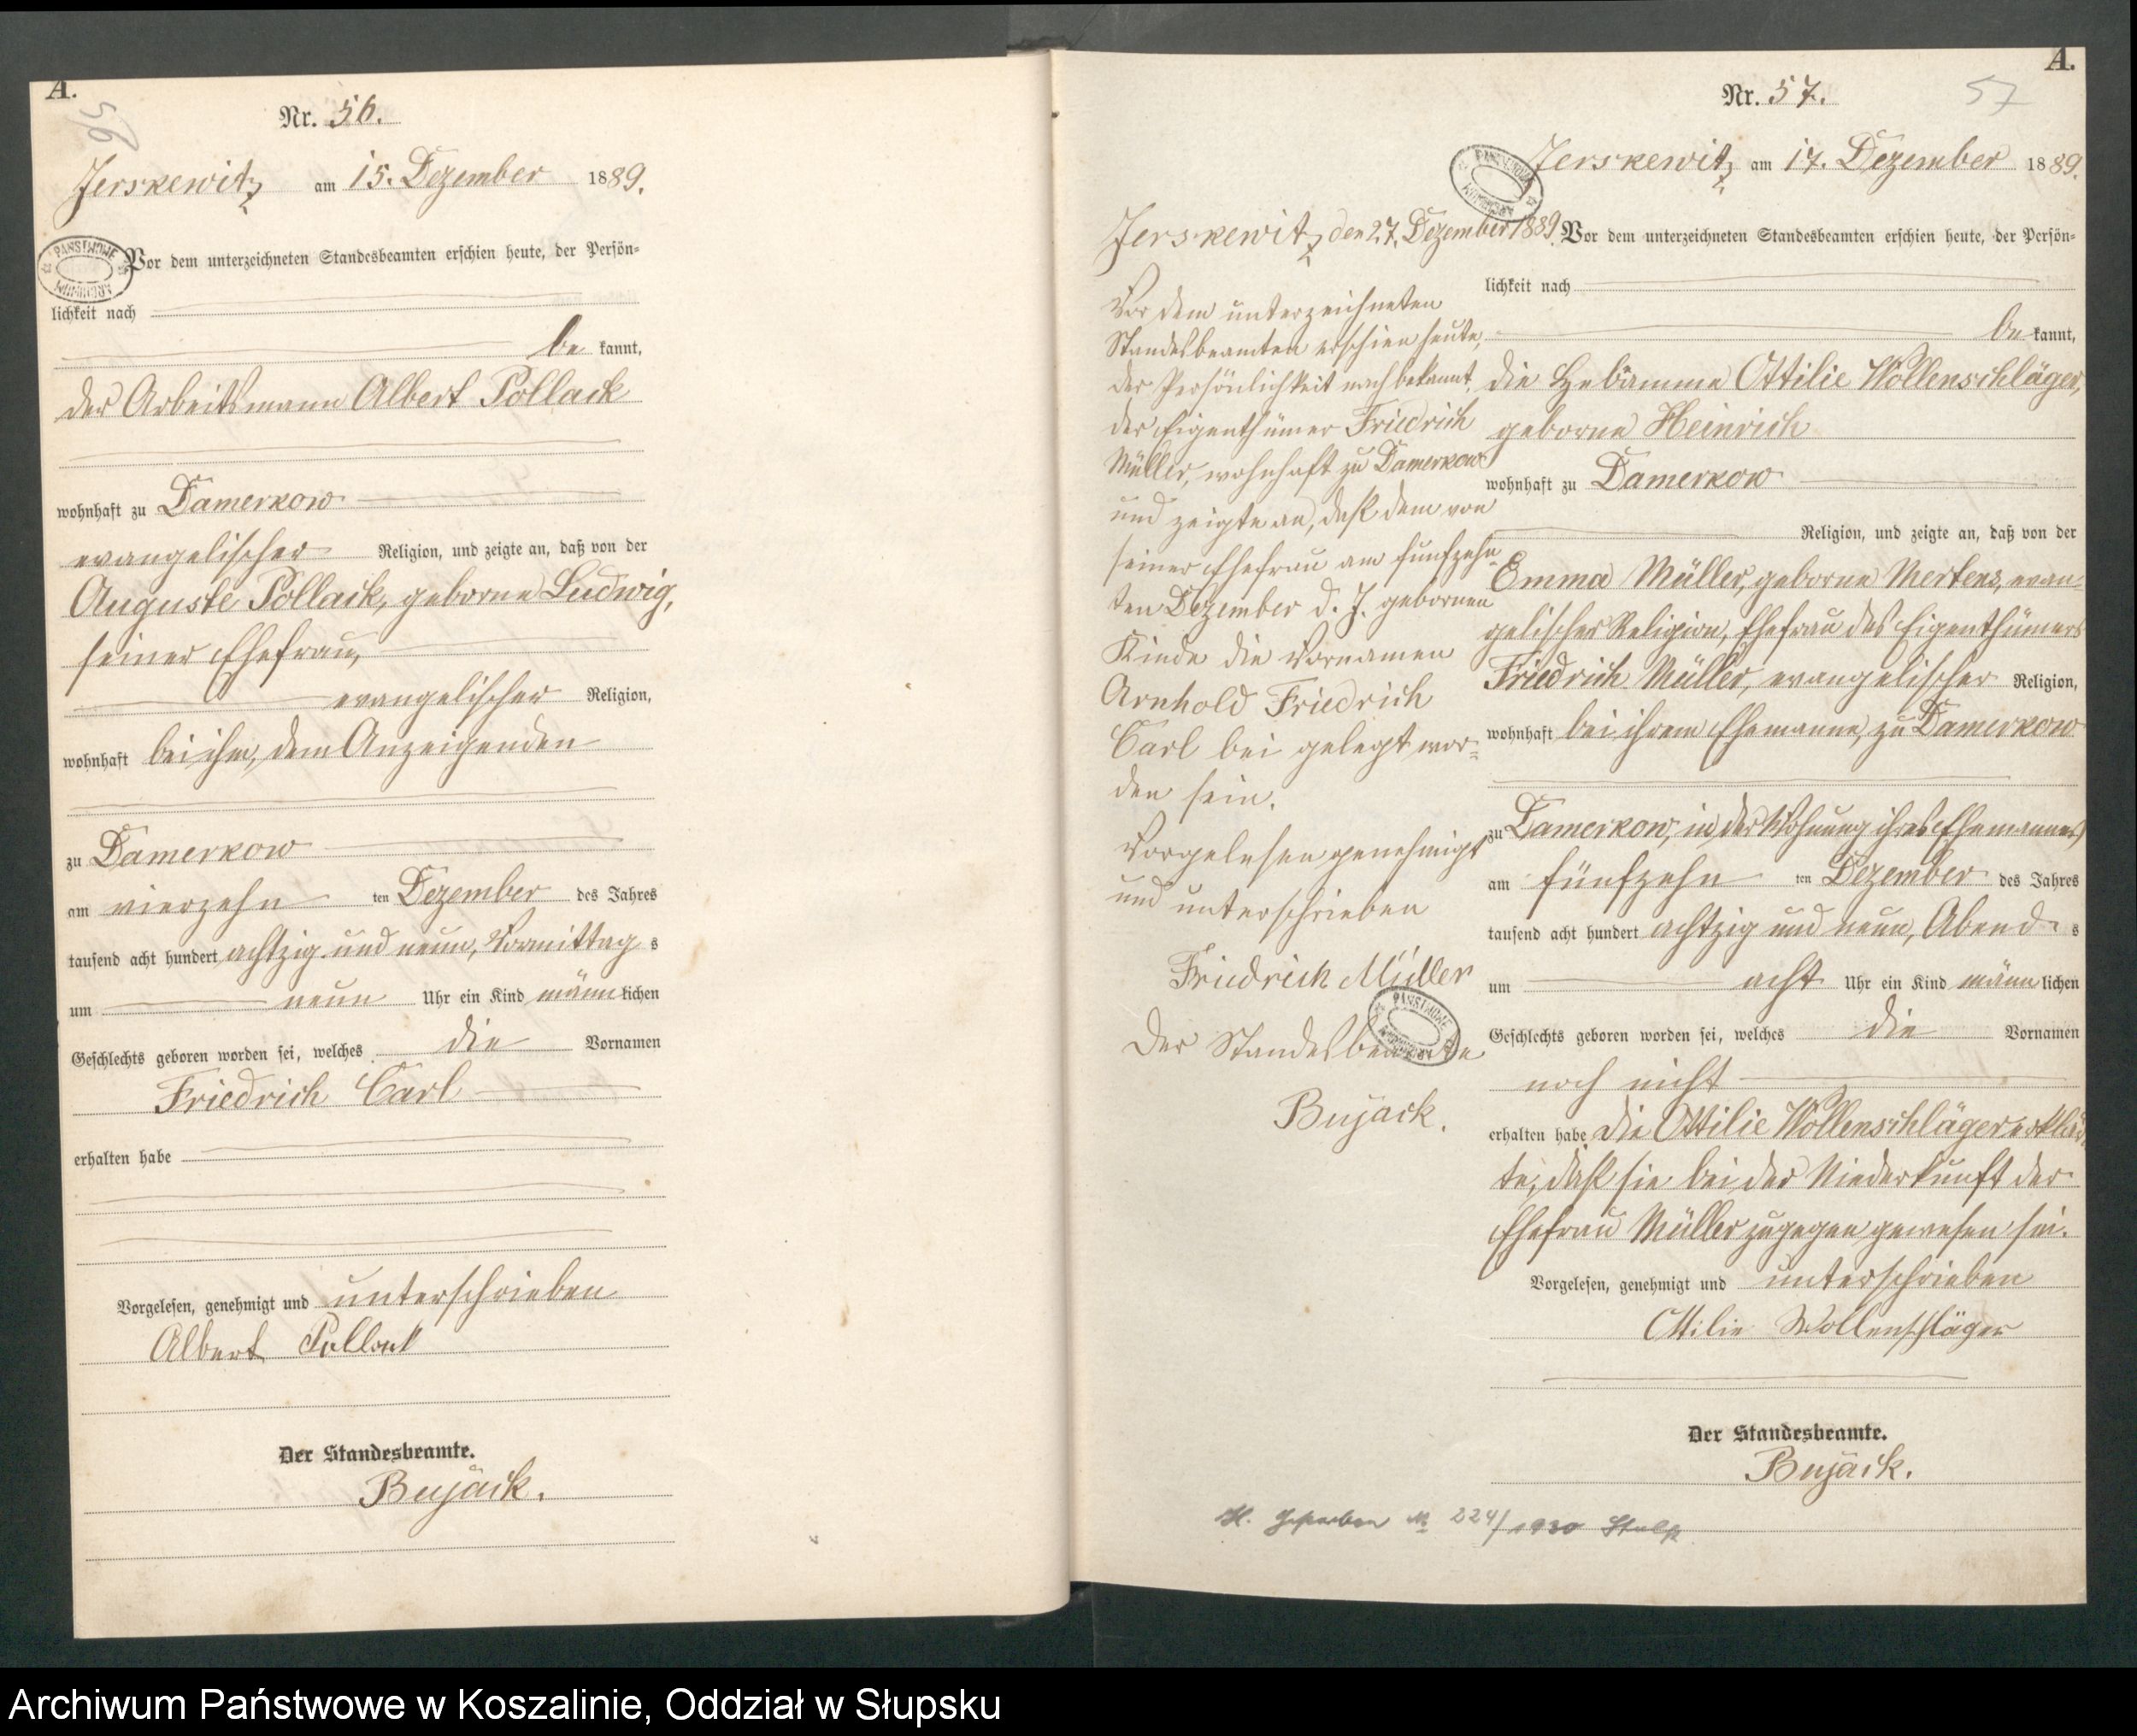 A.
56
Nr. 56.
Jerskewitz am 15. Dezember 1889.
PANSTWOWE ARCHIWUM
Vor dem unterzeichneten Standesbeamten erschien heute, der Persön-
lichkeit nach
be kannt,
der Arbeitsmann Albert Pollack
wohnhaft zu Damerkow
evangelischer Religion, und zeigte an, daß von der
Auguste Pollack, geborne Ludwig,
seiner Ehefrau,
evangelischer Religion,
wohnhaft bei ihm, dem Anzeigenden
zu Damerkow
am vierzehn ten Dezember des Jahres
tausend acht hundert achtzig und neun, Vormittag s
um neun Uhr ein Kind männ lichen
Geschlechts geboren worden sei, welches die Vornamen
Friedrich Carl
erhalten habe
Vorgelesen, genehmigt und unterschrieben
Albert Pollack
Der Standesbeamte.
Bujack.
A.
57
Nr. 57.
Jerskewitz am 17. Dezember 1889.
PANSTWOWE ARCHIWUM
Vor dem unterzeichneten Standesbeamten erschien heute, der Persön-
lichkeit nach
be kannt,
die Hebamme Ottilie Wollenschläger,
geborne Heinrich
wohnhaft zu Damerkow
Religion, und zeigte an, daß von der
Emma Müller, geborne Mertens, evan-
gelischer Religion, Ehefrau des Eigenthümers
Friedrich Müller, evangelischer Religion,
wohnhaft bei ihrem Ehemanne, zu Damerkow
zu Damerkow, in der Wohnung ihres Ehemannes
am fünfzehn ten Dezember des Jahres
tausend acht hundert achtzig und neun, Abend s
um acht Uhr ein Kind männ lichen
Geschlechts geboren worden sei, welches die Vornamen
noch nicht
erhalten habe. Die Ottilie Wollenschläger erklär
te, daß sie bei der Niederkunft der
Ehefrau Müller zugegen gewesen sei.
Vorgelesen, genehmigt und unterschrieben
Ottilie Wollenschläger
Der Standesbeamte.
Bujack.
Jerskewitz, den 27. Dezember 1889.
Vor dem unterzeichneten
Standesbeamten erschien heute,
der Persönlichkeit nach bekannt,
der Eigenthümer Friedrich
Müller, wohnhaft zu Damerkow
und zeigte an, daß dem von
seiner Ehefrau am funfzehn-
ten Dezember d. J. gebornen
Kinde die Vornamen
Arnhold Friedrich
Carl bei gelegt wor-
den sein.
Vorgelesen genehmigt
und unterschrieben
Friedrich Müller
PANSTWOWE ARCHIWUM
Der Standesbeamte
Bujack.
224/1930 Stolp
Archiwum Państwowe w Koszalinie, Oddział w Słupsku